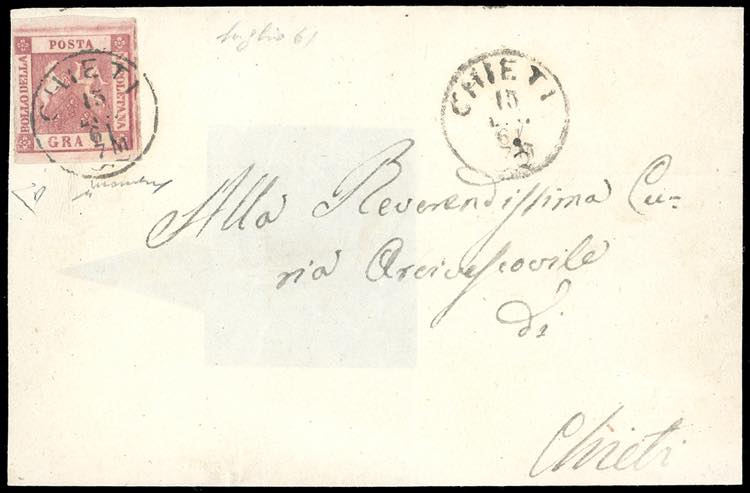 luglio 61
POSTA
BOLLO DELLA
LETANA
GRA
CHIETI
15
61
CHIETI
15
61
Alla Reverendissima Cu=
ria Arcivescovile
di
Chieti